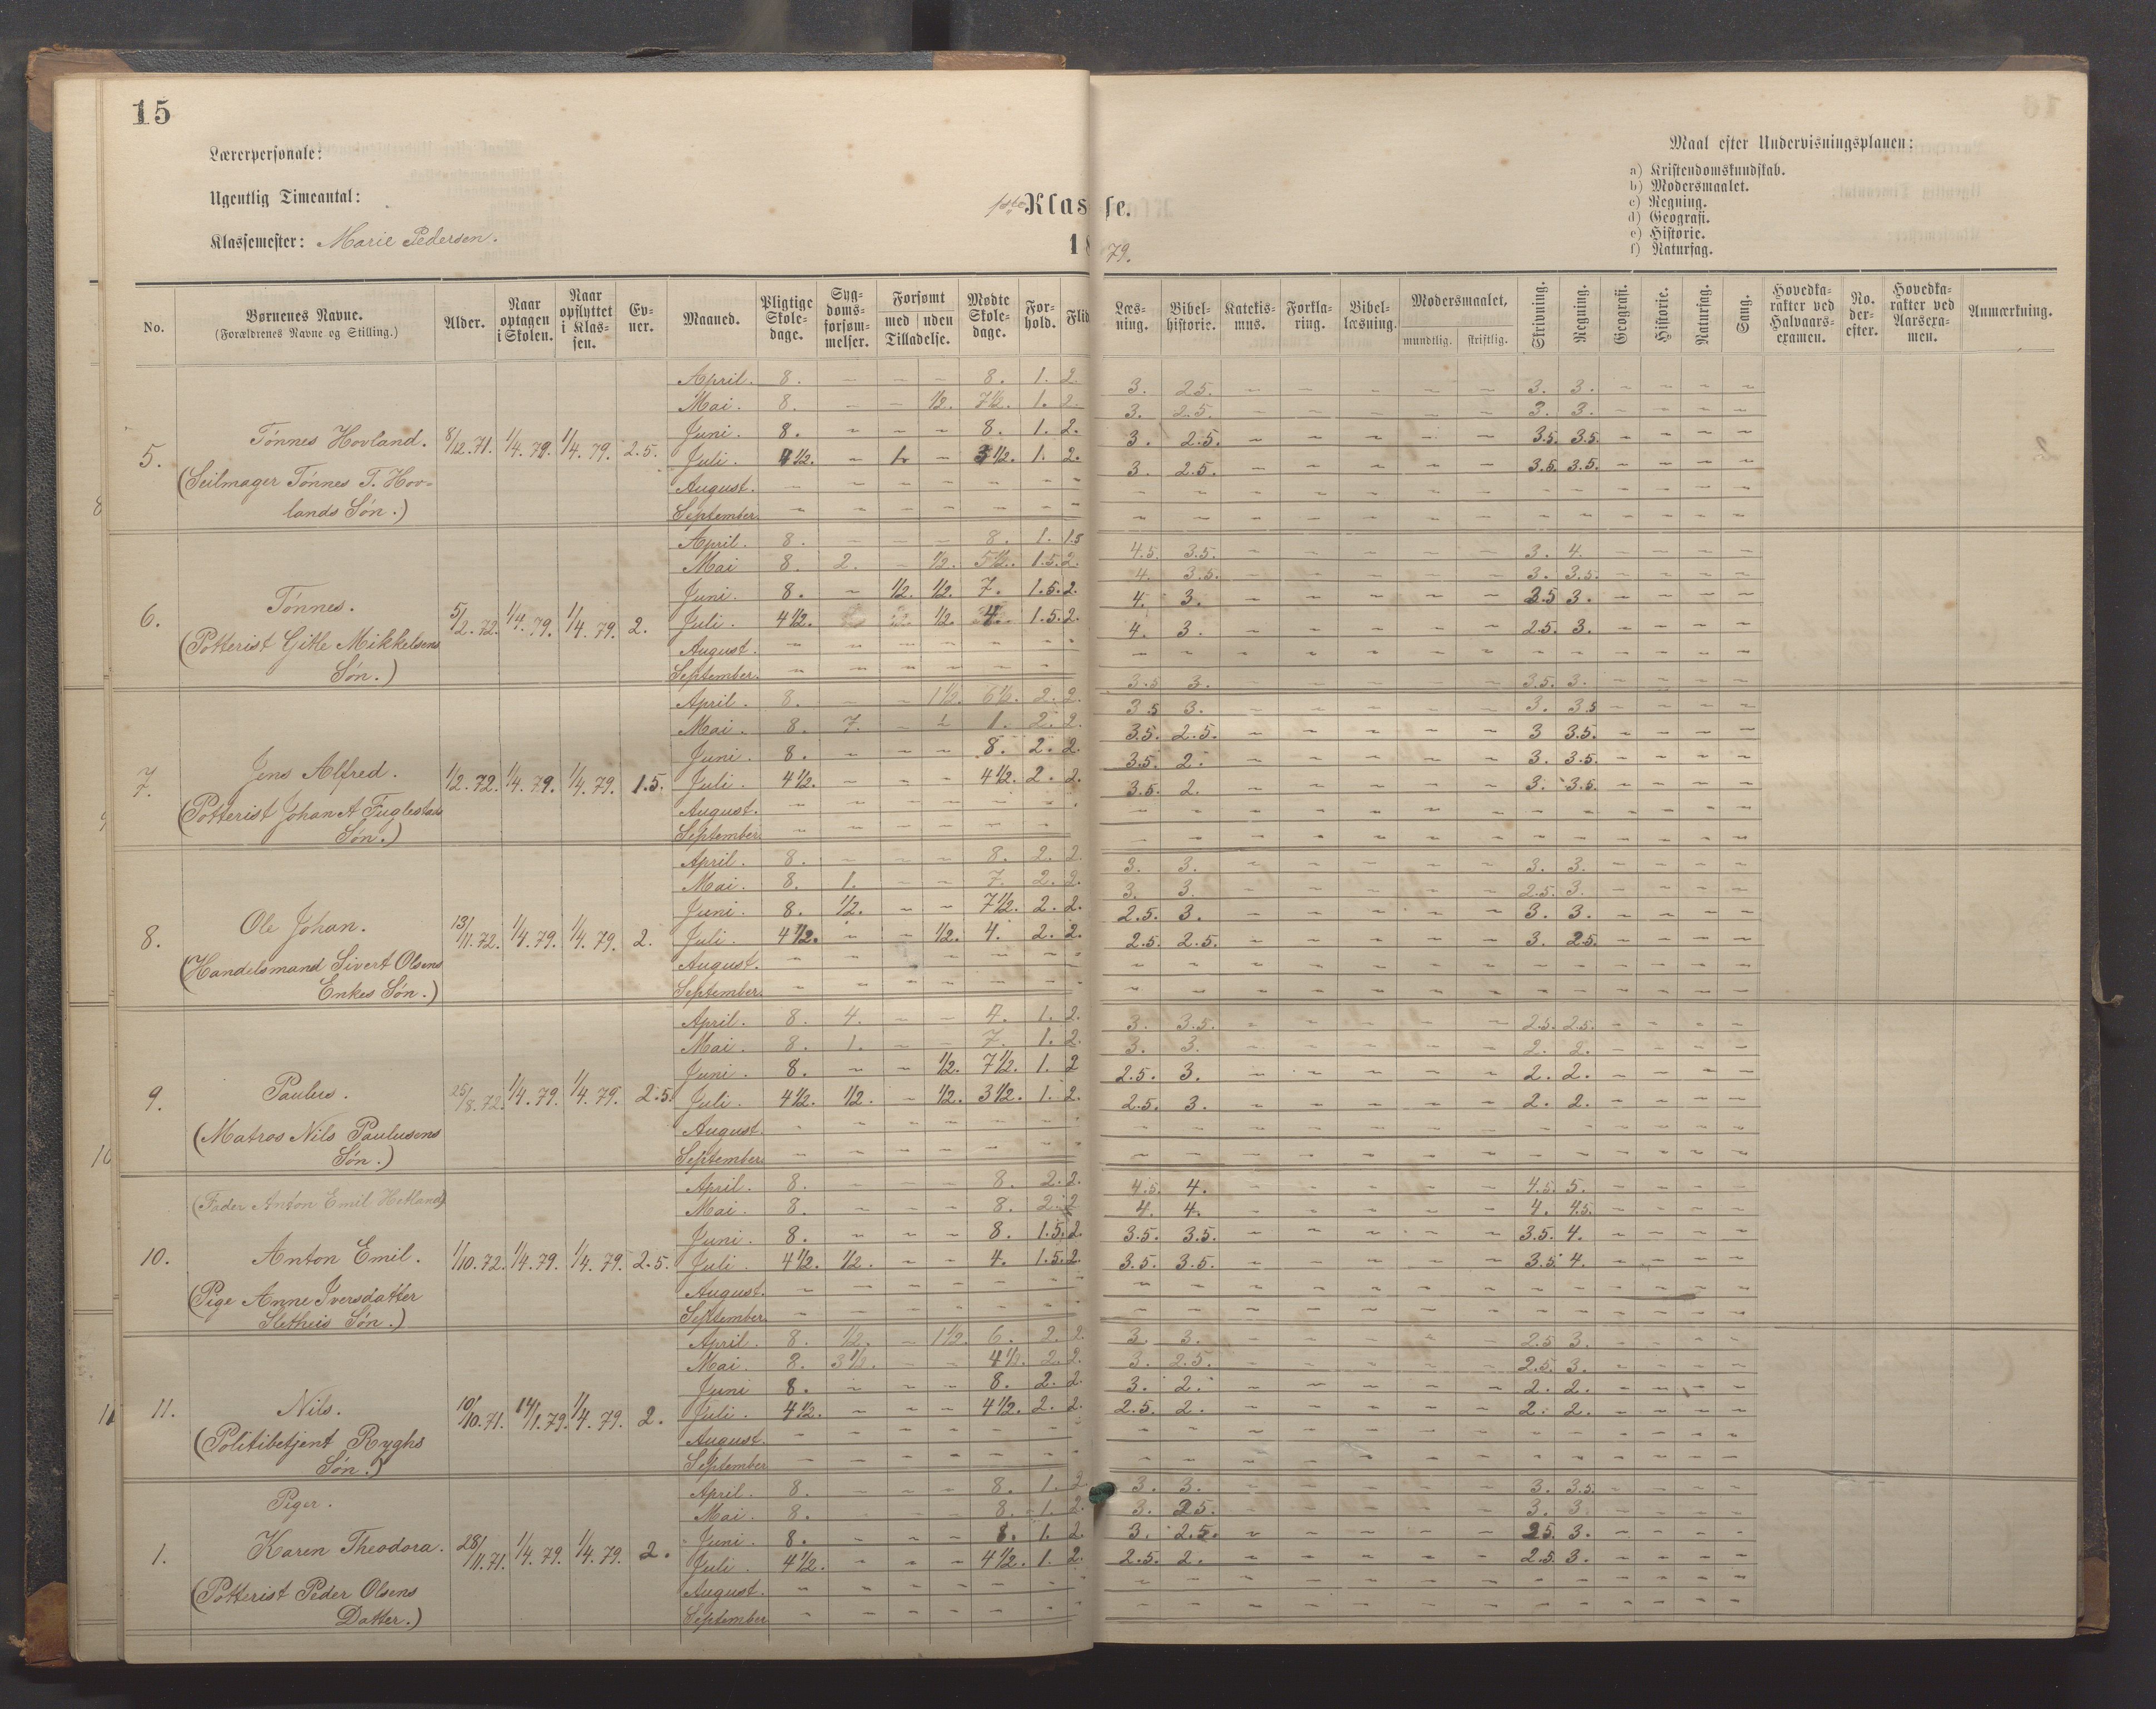 15
Lærerpersonale:
Ugentlig Timeantal:
Klassemester: Marie Pedersen.
1ste Klasse.
1879.
Maal efter Undervisningsplanen:
a) Kristendomskundskab.
b) Modersmaalet.
c) Regning.
d) Geografi.
e) Historie.
f) Naturfag.
No. | Børnenes Navne. (Forældrenes Navne og Stilling.) | Alder. | Naar optagen i Skolen. | Naar opflyttet i Klassen. | Evner. | Maaned. | Pligtige Skoledage. | Sygdomsforsømmelser. | Forsømt med Tilladelse. | Forsømt uden Tilladelse. | Mødte Skoledage. | Forhold. | Flid | Læsning. | Bibelhistorie. | Katekismus. | Forklaring. | Bibellæsning. | Modersmaalet, mundtlig. | skriftlig. | Skrivning. | Regning. | Geografi. | Historie. | Naturfag. | Sang. | Hovedkarakter ved Halvaarsexamen. | No. derefter. | Hovedkarakter ved Aarsexamen. | Anmærkning.
5. Tønnes Hovland. 8/12.71. 1/4.79. 1/4.79. 2.5.
(Seilmager Tønnes T. Hovlands Søn.)
April. 8. ~ ~ ~ 8. 1. 2. 3. 2.5. ~ ~ ~ ~ ~ 3. 3. ~ ~ ~ ~
Mai. 8. ~ ~ 1/2. 7 1/2. 1. 2. 3. 2.5. ~ ~ ~ ~ ~ 3. 3. ~ ~ ~ ~
Juni. 8. ~ ~ ~ 8. 1. 2. 3. 2.5. ~ ~ ~ ~ ~ 3.5. 3.5. ~ ~ ~ ~
Juli. 4 1/2. ~ 1. ~ 3 1/2. 1. 2. 3. 2.5. ~ ~ ~ ~ ~ 3.5. 3.5. ~ ~ ~ ~
August. ~
September. ~
6. Tønnes. 5/2.72. 1/4.79. 1/4.79. 2.
(Potterist Gitle Mikkelsens Søn.)
April. 8. ~ ~ ~ 8. 1. 1.5 4.5. 3.5. ~ ~ ~ ~ ~ 3. 4. ~ ~ ~ ~
Mai 8. 2. ~ 1/2. 5 1/2. 1.5. 2. 4. 3.5. ~ ~ ~ ~ ~ 3. 3.5. ~ ~ ~ ~
Juni. 8. ~ 1/2. 1/2. 7. 1.5. 2. 4. 3. ~ ~ ~ ~ ~ 3.5 3. ~ ~ ~ ~
Juli. 4 1/2. 1/2. 4. 1.5. 2. 4. 3. ~ ~ ~ ~ ~ 2.5. 3. ~ ~ ~ ~
August. ~
September. ~ 3.5 3. ~ 3.5. 3. ~
7. Jens Alfred. 1/2.72. 1/4.79. 1/4.79. 1.5.
(Potterist Johan A Fuglestads Søn.)
April. 8. ~ ~ 1 1/2. 6 1/2. 2. 2. 3.5 3. ~ ~ ~ ~ ~ 3. 3.5 ~ ~ ~ ~
Mai. 8. 7. ~ ~ 1. 2. 2. 3.5. 2.5. ~ ~ ~ ~ ~ 3 3.5. ~ ~ ~ ~
Juni. 8. ~ ~ ~ 8. 2. 2. 3.5. 2. ~ ~ ~ ~ ~ 3. 3.5. ~ ~ ~ ~
Juli. 4 1/2. ~ ~ ~ 4 1/2. 2. 2. 3.5. 2. ~ ~ ~ ~ ~ 3. 3.5. ~ ~ ~ ~
August. ~
September. ~
8. Ole Johan. 13/11.72. 1/4.79. 1/4.79. 2.
(Handelsmand Sivert Olsens Enkes Søn.)
April. 8. ~ ~ ~ 8. 2. 2. 3. 3. ~ ~ ~ ~ ~ 3. 3. ~ ~ ~ ~
Mai. 8. 1. ~ ~ 7. 2. 2. 3. 3. ~ ~ ~ ~ ~ 2.5. 3. ~ ~ ~ ~
Juni. 8. 1/2. ~ ~ 7 1/2. 2. 2. 2.5. 3. ~ ~ ~ ~ ~ 3. 3. ~ ~ ~ ~
Juli. 4 1/2. ~ ~ 1/2. 4. 2. 2. 2.5. 2.5. ~ ~ ~ ~ ~ 3. 2.5. ~ ~ ~ ~
August. ~
September. ~
9. Paulus. 25/8.72. 1/4.79. 1/4.79. 2.5.
(Matros Nils Paulusens Søn.)
April. 8. 4. ~ ~ 4. 1. 2. 3. 3.5. ~ ~ ~ ~ ~ 2.5. 2.5. ~ ~ ~ ~
Mai. 8. 1. ~ ~ 7. 1. 2. 3. 3. ~ ~ ~ ~ ~ 2. 2. ~ ~ ~ ~
Juni. 8. ~ ~ 1/2. 7 1/2. 1. 2 2.5. 3. ~ ~ ~ ~ ~ 2. 2. ~ ~ ~ ~
Juli. 4 1/2. 1/2. ~ 1/2. 3 1/2. 1. 2. 2.5. 3. ~ ~ ~ ~ ~ 2. 2. ~ ~ ~ ~
August. ~
September. ~
(Fader Anton Emil Hetland)
10. Anton Emil. 1/10.72. 1/4.79. 1/4.79. 2.5.
(Pige Anne Iversdatter Sletheis Søn.)
April. 8. ~ ~ ~ 8. 2. 2. 4.5. 4. ~ ~ ~ ~ ~ 4.5. 5. ~ ~ ~ ~
Mai. 8. ~ ~ ~ 8. 2. 2 4. 4. ~ ~ ~ ~ ~ 4. 4.5. ~ ~ ~ ~
Juni. 8. ~ ~ ~ 8. 1.5. 2. 3.5. 3.5. ~ ~ ~ ~ ~ 3.5. 4. ~ ~ ~ ~
Juli. 4 1/2. 1/2. ~ ~ 4. 1.5. 2. 3.5. 3.5. ~ ~ ~ ~ ~ 3.5 4. ~ ~ ~ ~
August. ~
September. ~
11. Nils. 10/10.71. 14/1.79. 1/4.79. 2.
(Politibetjent Ryghs Søn.)
April. 8. 1/2. ~ 1 1/2. 6. 2. 2. 3. 3. ~ ~ ~ ~ ~ 2.5 3. ~ ~ ~ ~
Mai. 8. 3 1/2. ~ ~ 4 1/2. 2. 2. 3. 2.5. ~ ~ ~ ~ ~ 2.5. 3. ~ ~ ~ ~
Juni 8. ~ ~ ~ 8. 2. 2. 3. 2. ~ ~ ~ ~ ~ 2. 2. ~ ~ ~ ~
Juli. 4 1/2. ~ ~ ~ 4 1/2. 2. 2. 2.5. 2. ~ ~ ~ ~ ~ 2. 2. ~ ~ ~ ~
August. ~
September ~
Piger.
1. Karen Theodora. 28/11.71. 1/4.79. 1/4.79. 2.
(Potterist Peder Olsens Datter.)
April. 8. ~ ~ ~ 8. 1. 2 3. 3. ~ ~ ~ ~ ~ 3. 3.5. ~ ~ ~ ~
Mai. 8. ~ ~ ~ 8. 1. 2. 3. 2.5. ~ ~ ~ ~ ~ 3. 3 ~ ~ ~ ~
Juni. 8. ~ ~ ~ 8. 1. 2. 3. 2.5. ~ ~ ~ ~ ~ 2.5. 3. ~ ~ ~ ~
Juli. 4 1/2. ~ ~ ~ 4 1/2. 1. 2. 2.5. 2. ~ ~ ~ ~ ~ 2.5. 3. ~ ~ ~ ~
August. ~
September ~